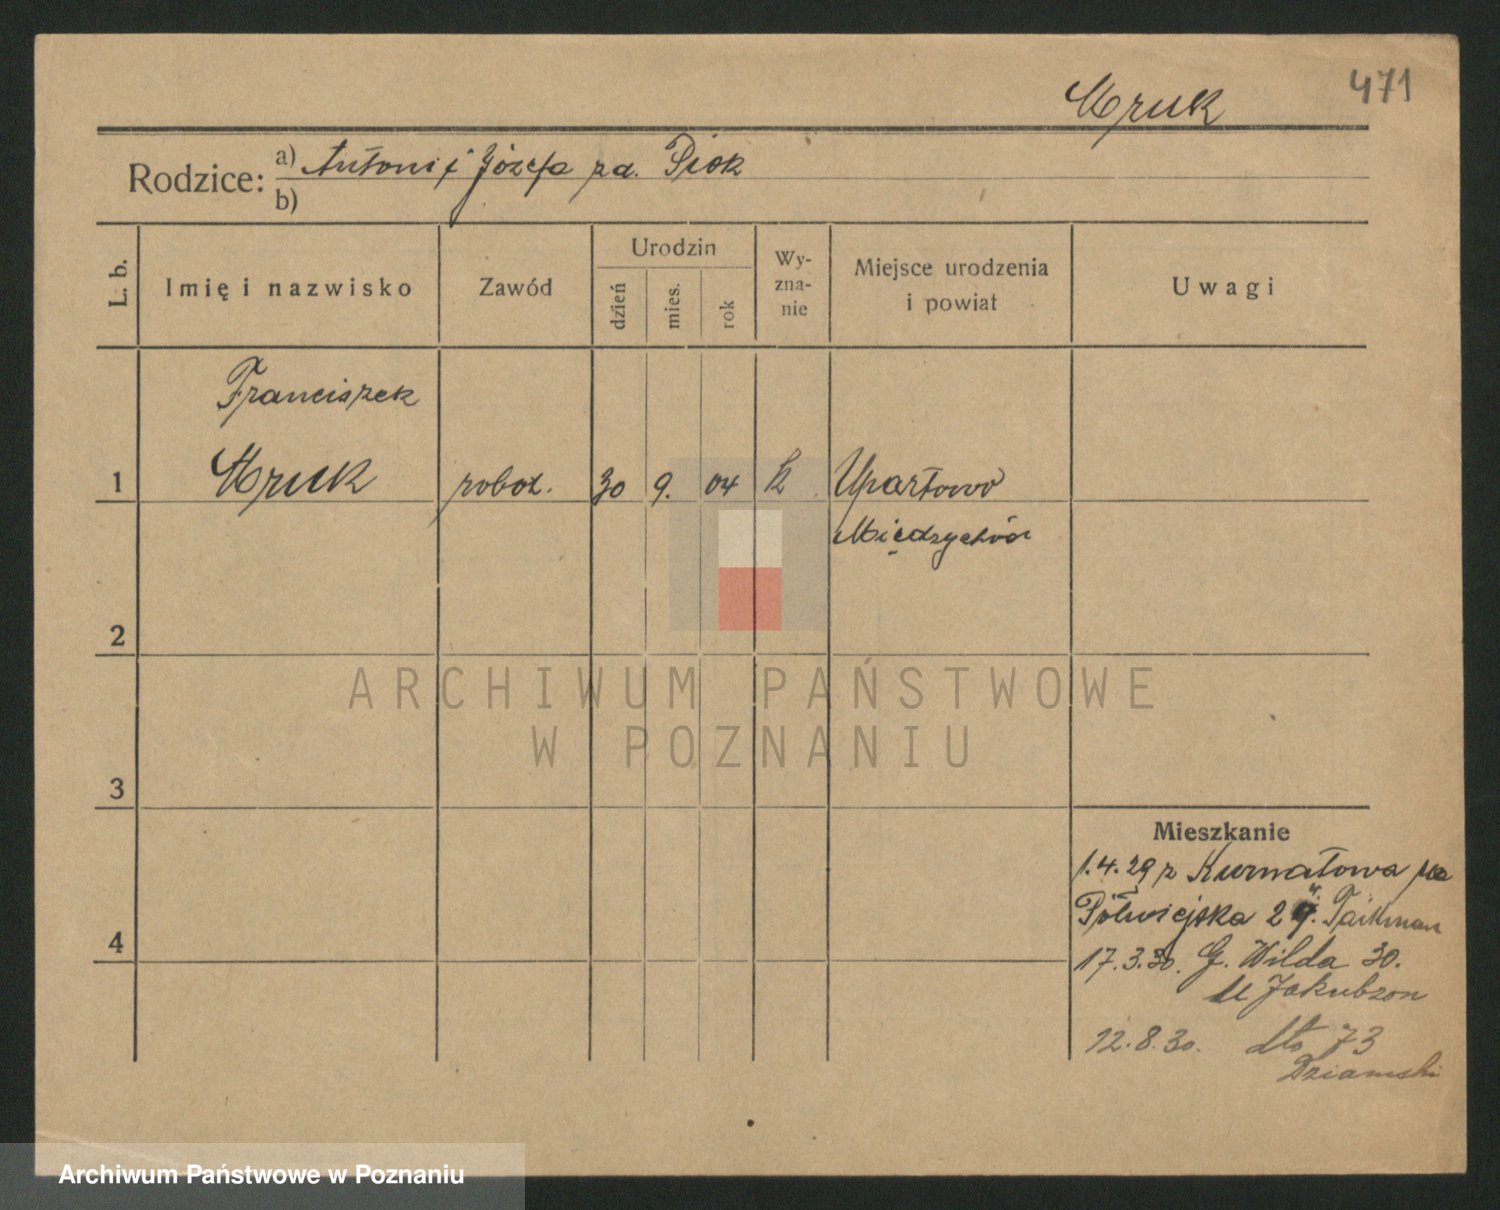 471
Mruk
Rodzice: a) Antoni i Józefa zd. Piok
b)
L. b.
Imię i nazwisko
Zawód
Urodzin
dzień
mies.
rok
Wy-
zna-
nie
Miejsce urodzenia
i powiat
Uwagi
Franciszek
1 Mruk robot. 30 9. 04 k Upartowo
Międzychód
2
3
4
Mieszkanie
1.4.29 z Kurnatowa na
Półwiejska 29. u.
17.3.30. G. Wilda 30.
u Jakubzon
12.8.30. dto 73
Dziamski
ARCHIWUM PAŃSTWOWE
W POZNANIU
Archiwum Państwowe w Poznaniu